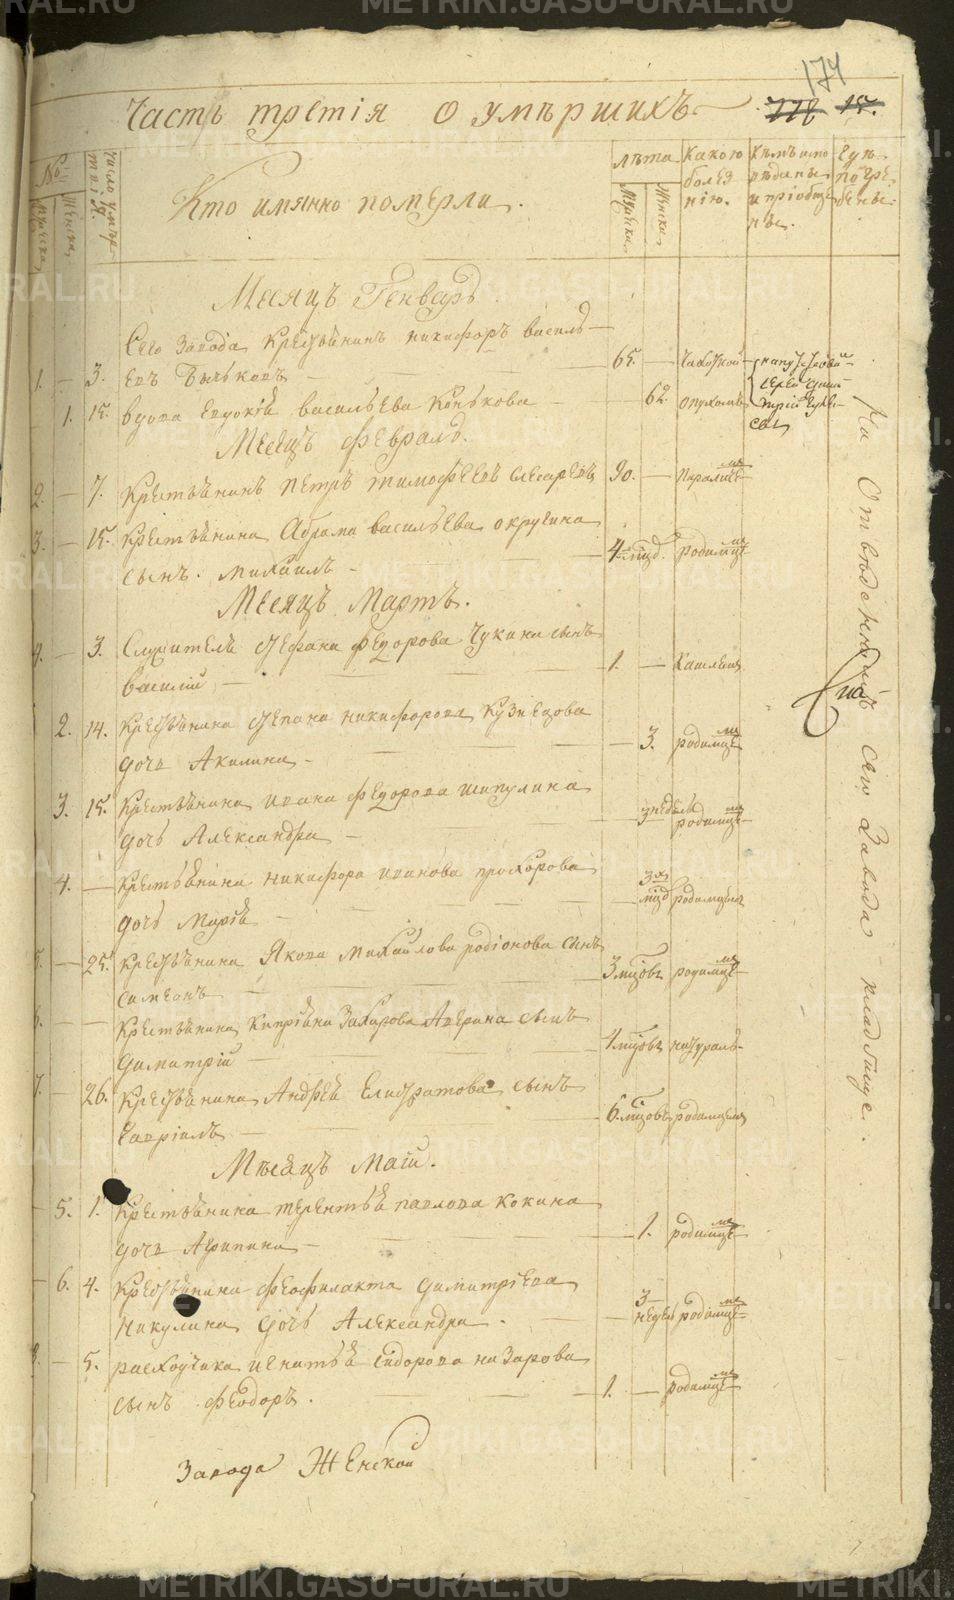 174
Часть третія о умѣршихъ 15.
№
мужска
женска
число умертвій
Кто имянно померли.
лѣта
мужска
женска
Какою болезнію.
Кѣмъ исповѣданы и пріобщены.
Гдѣ погребены.
Месяцъ Генварь
Сего завода Крестьянинъ никифоръ василь-
1. — 3. евъ Быльковъ — 65. — чахоткой
1. 15. вдова Евдокія васильева Конькова — 62. опухолью
Месяцъ Февраль.
2. — 7. Крестьянинъ Петръ тимофеевъ слесаревъ 90. — параличе
3. — 15. Крестьянина Абрама васильева округина
сынъ. михаилъ — 4 мцд. родимце
Месяцъ Мартъ.
4. — 3. Служителя Стефана федорова Чукина сынъ
василій — 1. — Кашлемъ
2. 14. Крестьянина степана никифорова Кузнецова
дочь Акилина — 3. родимце
3. 15. Крестьянина ивана федорова шипулина
дочь Александра — 3 недели родимце
4. — Крестьянина никифора иванова прохорова
дочь Марія — 3 мцд родимцемъ
5. — 25. Крестьянина Якова Михайлова родіонова сынъ
симеонъ — 3 мцовъ родимце
6. — Крестьянина Кипріяна Захарова Аверина сынъ
Димитрій — 4 мцовъ натураль-
7. 26. Крестьянина Андрея Елистратова сынъ
Гавріилъ — 6. мцовъ родимцемъ
Мѣсяцъ Маій.
5. 1. Крестьянина терентья павлова кокина
дочь Агрипина — 1. родимце
6. 4. Крестьянина феофилакта димитріева
никулина дочь Александра. — 3 недел родимце
8. — 5. расходчика игнатья сидорова назарова
сынъ феодоръ. — 1. — родимце
На Отведенномъ сего Завода кладбище.
завода Женской